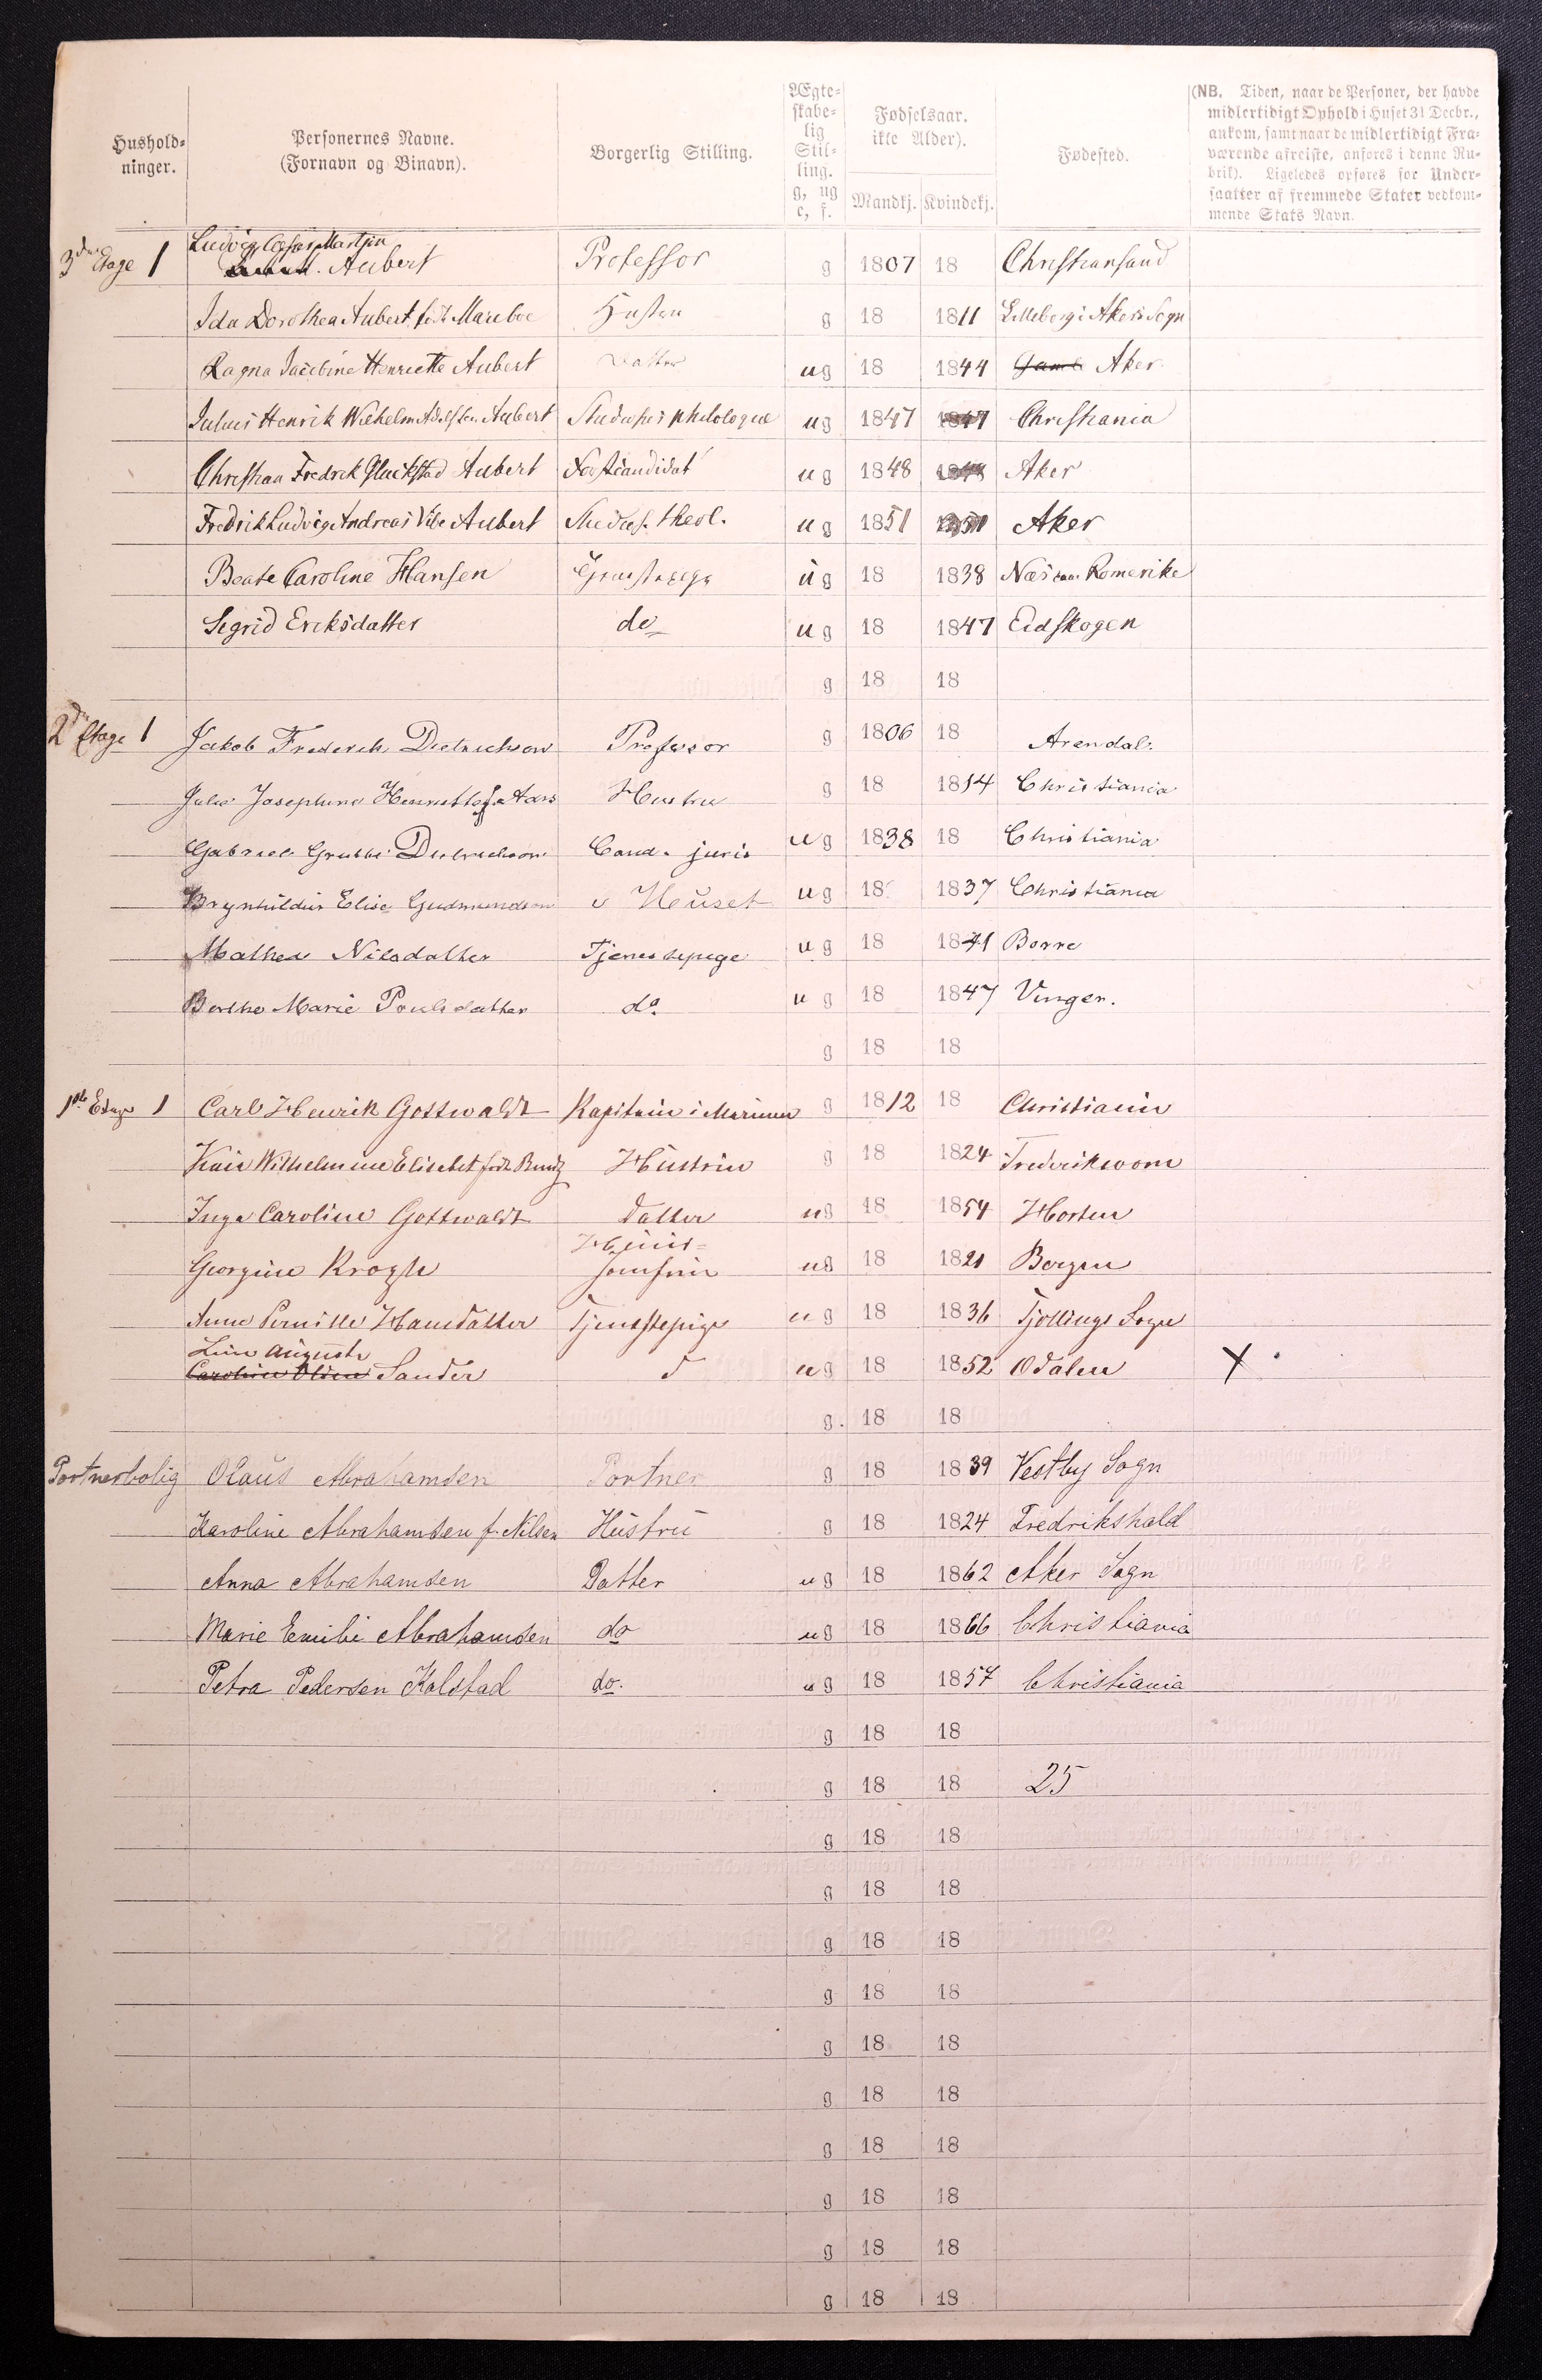 Hushold-
ninger.
Personernes Navne.
(Fornavn og Binavn).
Borgerlig Stilling.
Ægte-
skabe-
lig
Stil-
ling.
g, ug
e, f.
Fødselsaar.
ikke Alder).
Mandkj. Kvindekj.
Fødested.
(NB. Tiden, naar de Personer, der havde
midlertidigt Ophold i Huset 31 Decbr.,
ankom, samt naar de midlertidigt Fra-
værende afreiste, anføres i denne Ru-
brik). Ligeledes opføres for Under-
saatter af fremmede Stater vedkom-
mende Stats Navn.
Ludvig Cæsar Martin
3die Etage 1 Aubert Professor g 1807 18 Christiansand
Ida Dorothea Aubert født Mariboe Hustru g 18 1811 Lilleborg i Akers Sogn
Ragna Jacobine Henriette Aubert Datter ug 18 1844 Aker
Julius Henrik Wilhelm Aubert Studiosus philologiæ ug 1847 1847 Christiania
Christian Fredrik Gluckstad Aubert Forstcandidat ug 1848 1848 Aker
Fredrik Ludvig Andreas Vibe Aubert Studios. theol. ug 1851 1851 Aker
Beate Caroline Hansen ug 18 1838 Næs paa Romerike
Sigrid Eriksdatter do ug 18 1847 Eidskogen
g 18 18
2den Etage 1 Jakob Frederich Dietrichson Professor g 1806 18 Arendal.
Julie Josephine Henriette f. Aars Hustru g 18 1814 Christiania
Gabriel Grubbe Dietrichson Cand. juris ug 1838 18 Christiania
Brynhildur Elise Gudmundson i Huset ug 18 1837 Christiania
Mathea Nilsdatter Tjenestepige ug 18 1841 Borre
Berthe Marie Poulsdatter do. ug 18 1847 Vinger.
g 18 18
1ste Etage 1 Carl Henrik Gottwaldt Kapitain i Marinen g 1812 18 Christiania
Wilhelmine Elisabet født Hustru g 18 1824 Frederiksværn
Inga Caroline Gottwaldt Datter ug 18 1854 Horten
Huus-
Georgine Krogh Jomfru ug 18 1821 Bergen
Anne Pernille Hansdatter Tjenstepige ug 18 1836 Tjøllings Sogn
Line Auguste
Caroline Olsen Sander d ug 18 1852 Odalen X
g. 18 18
Portnerbolig Olaus Abrahamsen Portner g 18 1839 Vestby Sogn
Karoline Abrahamsen f. Nilsen Hustru g 18 1824 Fredrikshald
Anna Abrahamsen Datter ug 18 1862 Aker Sogn
Marie Emilie Abrahamsen do ug 18 1866 Christiania
Petra Pedersen Kolstad do. ug 18 1857 Christiania
g 18 18
g 18 18 25
g 18 18
g 18 18
g 18 18
g 18 18
g 18 18
g 18 18
g 18 18
g 18 18
g 18 18
g 18 18